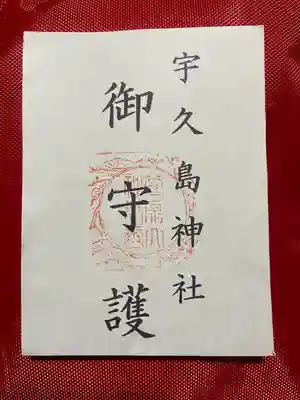 宇久島神社
御守護